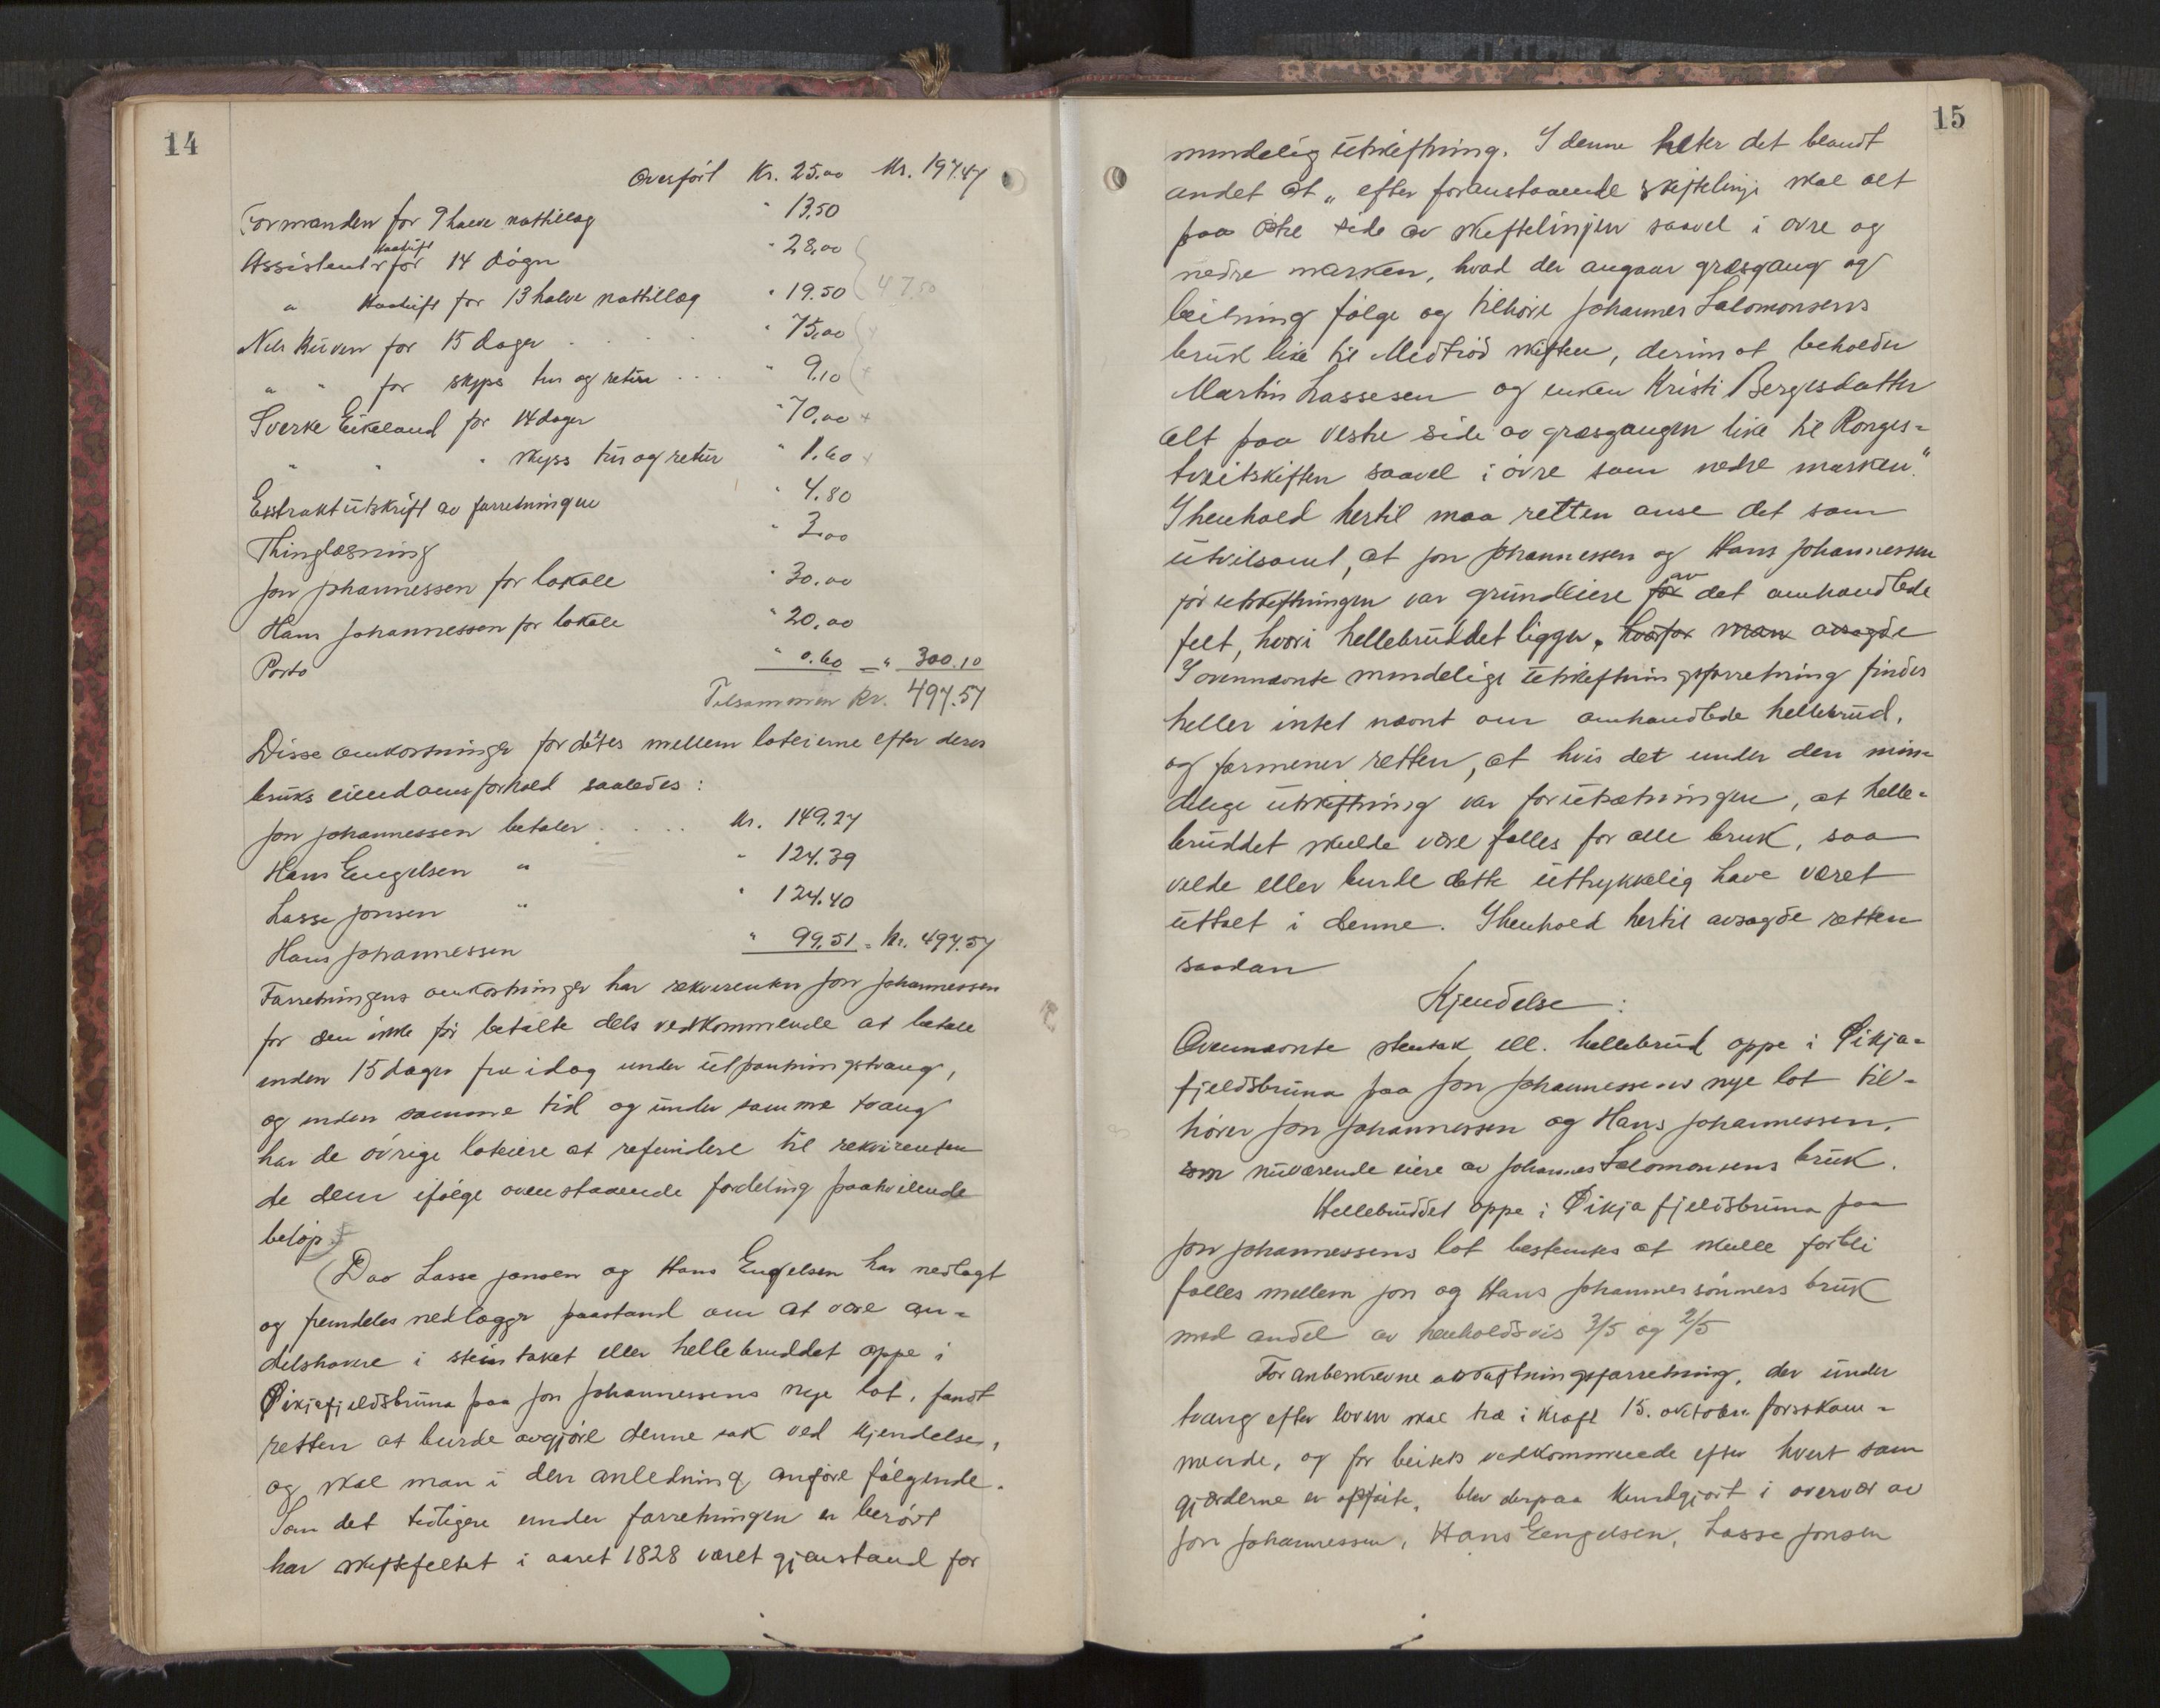 14
Overført Kr. 25.00 Kr. 197.47
Formanden for 9 halve nattillæg " 13.50
Assistenter Kaartift for 14 døgn " 28,00
" for 13 halve nattillæg " 19.50 47.50
Nils Kuven for 15 dager " 75,00
" " for skyss tur og retur " 9.10
Sverke Eikeland for 14 dager " 70,00
" " " skyss tur og retur " 1.60
Extraktutskrift av forretningen " 4.80
Thinglæsning " 3.00
Jon Johannessen for lokale " 30.00
Hans Johannessen for lokale " 20.00
Porto " 0.60 = " 300.10
Tilsammen Kr. 497.57
Disse omkostninger fordeles mellem loteierne efter deres
bruks eiendomsforhold saaledes:
Jon Johannessen betaler Kr. 149.27
Hans Engelsen " " 124.39
Lasse Jonsen " " 124.40
Hans Johannessen " 99.51 = Kr. 497.57
Forretningens omkostninger har rekvirenten Jon Johannessen
for den ikke før betalte dels vedkommende at betale
inden 15 dager fra idag under utpantningstvang,
og inden samme tid og under samme tvang
har de øvrige loteiere at refundere til rekvirenten
de dem ifølge ovenstaaende fordeling paahvilende
beløp.
(Da Lasse Jonsen og Hans Engelsen har nedlagt
og fremdeles nedlægger paastand om at være an-
delshavere i steintaket eller hellebruddet oppe i
Øikjafjeldsbruna paa Jon Johannessens nye lot, fandt
retten at burde avgjøre denne sak ved kjendelse,
og skal man i den anledning anføre følgende.
Som det tidligere under forretningen er berørt
har skiftefeltet i aaret 1828 været gjenstand for
15
mindelig utskiftning. I denne heter det blandt
andet at „ efter foranstaaende skiftelinje skal alt
paa østre side av skiftelinjen saavel i øvre og
nedre marken, hvad der angaar græsgang og
beitning følge og tilhøre Johannes Salomonsens
bruk like til Medtrød skiften, derimot beholder
Martin Lassesen og enken Kristi Bergesdatter
alt paa vestre side av græsgangen like til Ronges-
tveitskiften saavel i øvre som nedre marken."
I henhold hertil maa retten anse det som
utvilsomt, at Jon Johannessen og Hans Johannessen
før utskiftningen var grundeiere for av det omhandlede
felt, hvori hellebruddet ligger. hvorfor man avsagde
I ovennævnte mindelige utskiftningsforretning findes
heller intet nævnt om omhandlede hellebrud,
og formener retten, at hvis det under den min-
delige utskiftning var forutsætningen, at helle-
bruddet skulde være fælles for alle bruk, saa
vilde eller burde dette uttrykkelig have været
uttalt i denne. I henhold hertil avsagde retten
saadan
Kjendelse:
Ovennævnte stentak ell. hellebrud oppe i Øikja-
fjeldsbruna paa Jon Johannessens nye lot til-
hører Jon Johannessen og Hans Johannessen,
som nuværende eiere av Johannes Salomonsens bruk.
Hellebruddet oppe i Øikjafjeldsbruna paa
Jon Johannessens lot bestemtes at skulle forbli
fælles mellem Jon og Hans Johannessønners bruk
med andel av henholdsvis 3/5 og 2/5
Foranbeskrevne utskiftningsforretning, der under
tvang efter loven skal træ i kraft 15. oktober førstkom-
mende, og for beitets vedkommende efter hvert som
gjærderne er opførte, blev derpaa kundgjort i overvær av
Jon Johannessen, Hans Engelsen, Lasse Jonsen